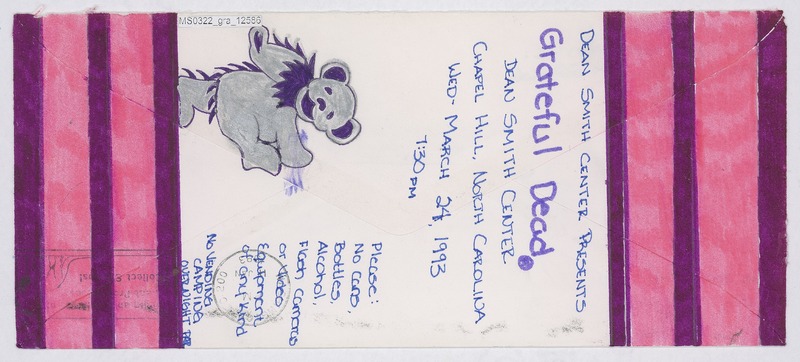 MS0322_gra_12566
DEAN SMITH CENTER PRESENTS
Grateful Dead.
DEAN SMITH CENTER
CHAPEL HILL, NORTH CAROLINA
WED- MARCH 24, 1993
7:30 PM
Please:
No Cans,
Bottles,
Alcohol,
Flash Cameras
or Video
Equipment
of any kind
No Vending
CAMPING
OVERNIGHT